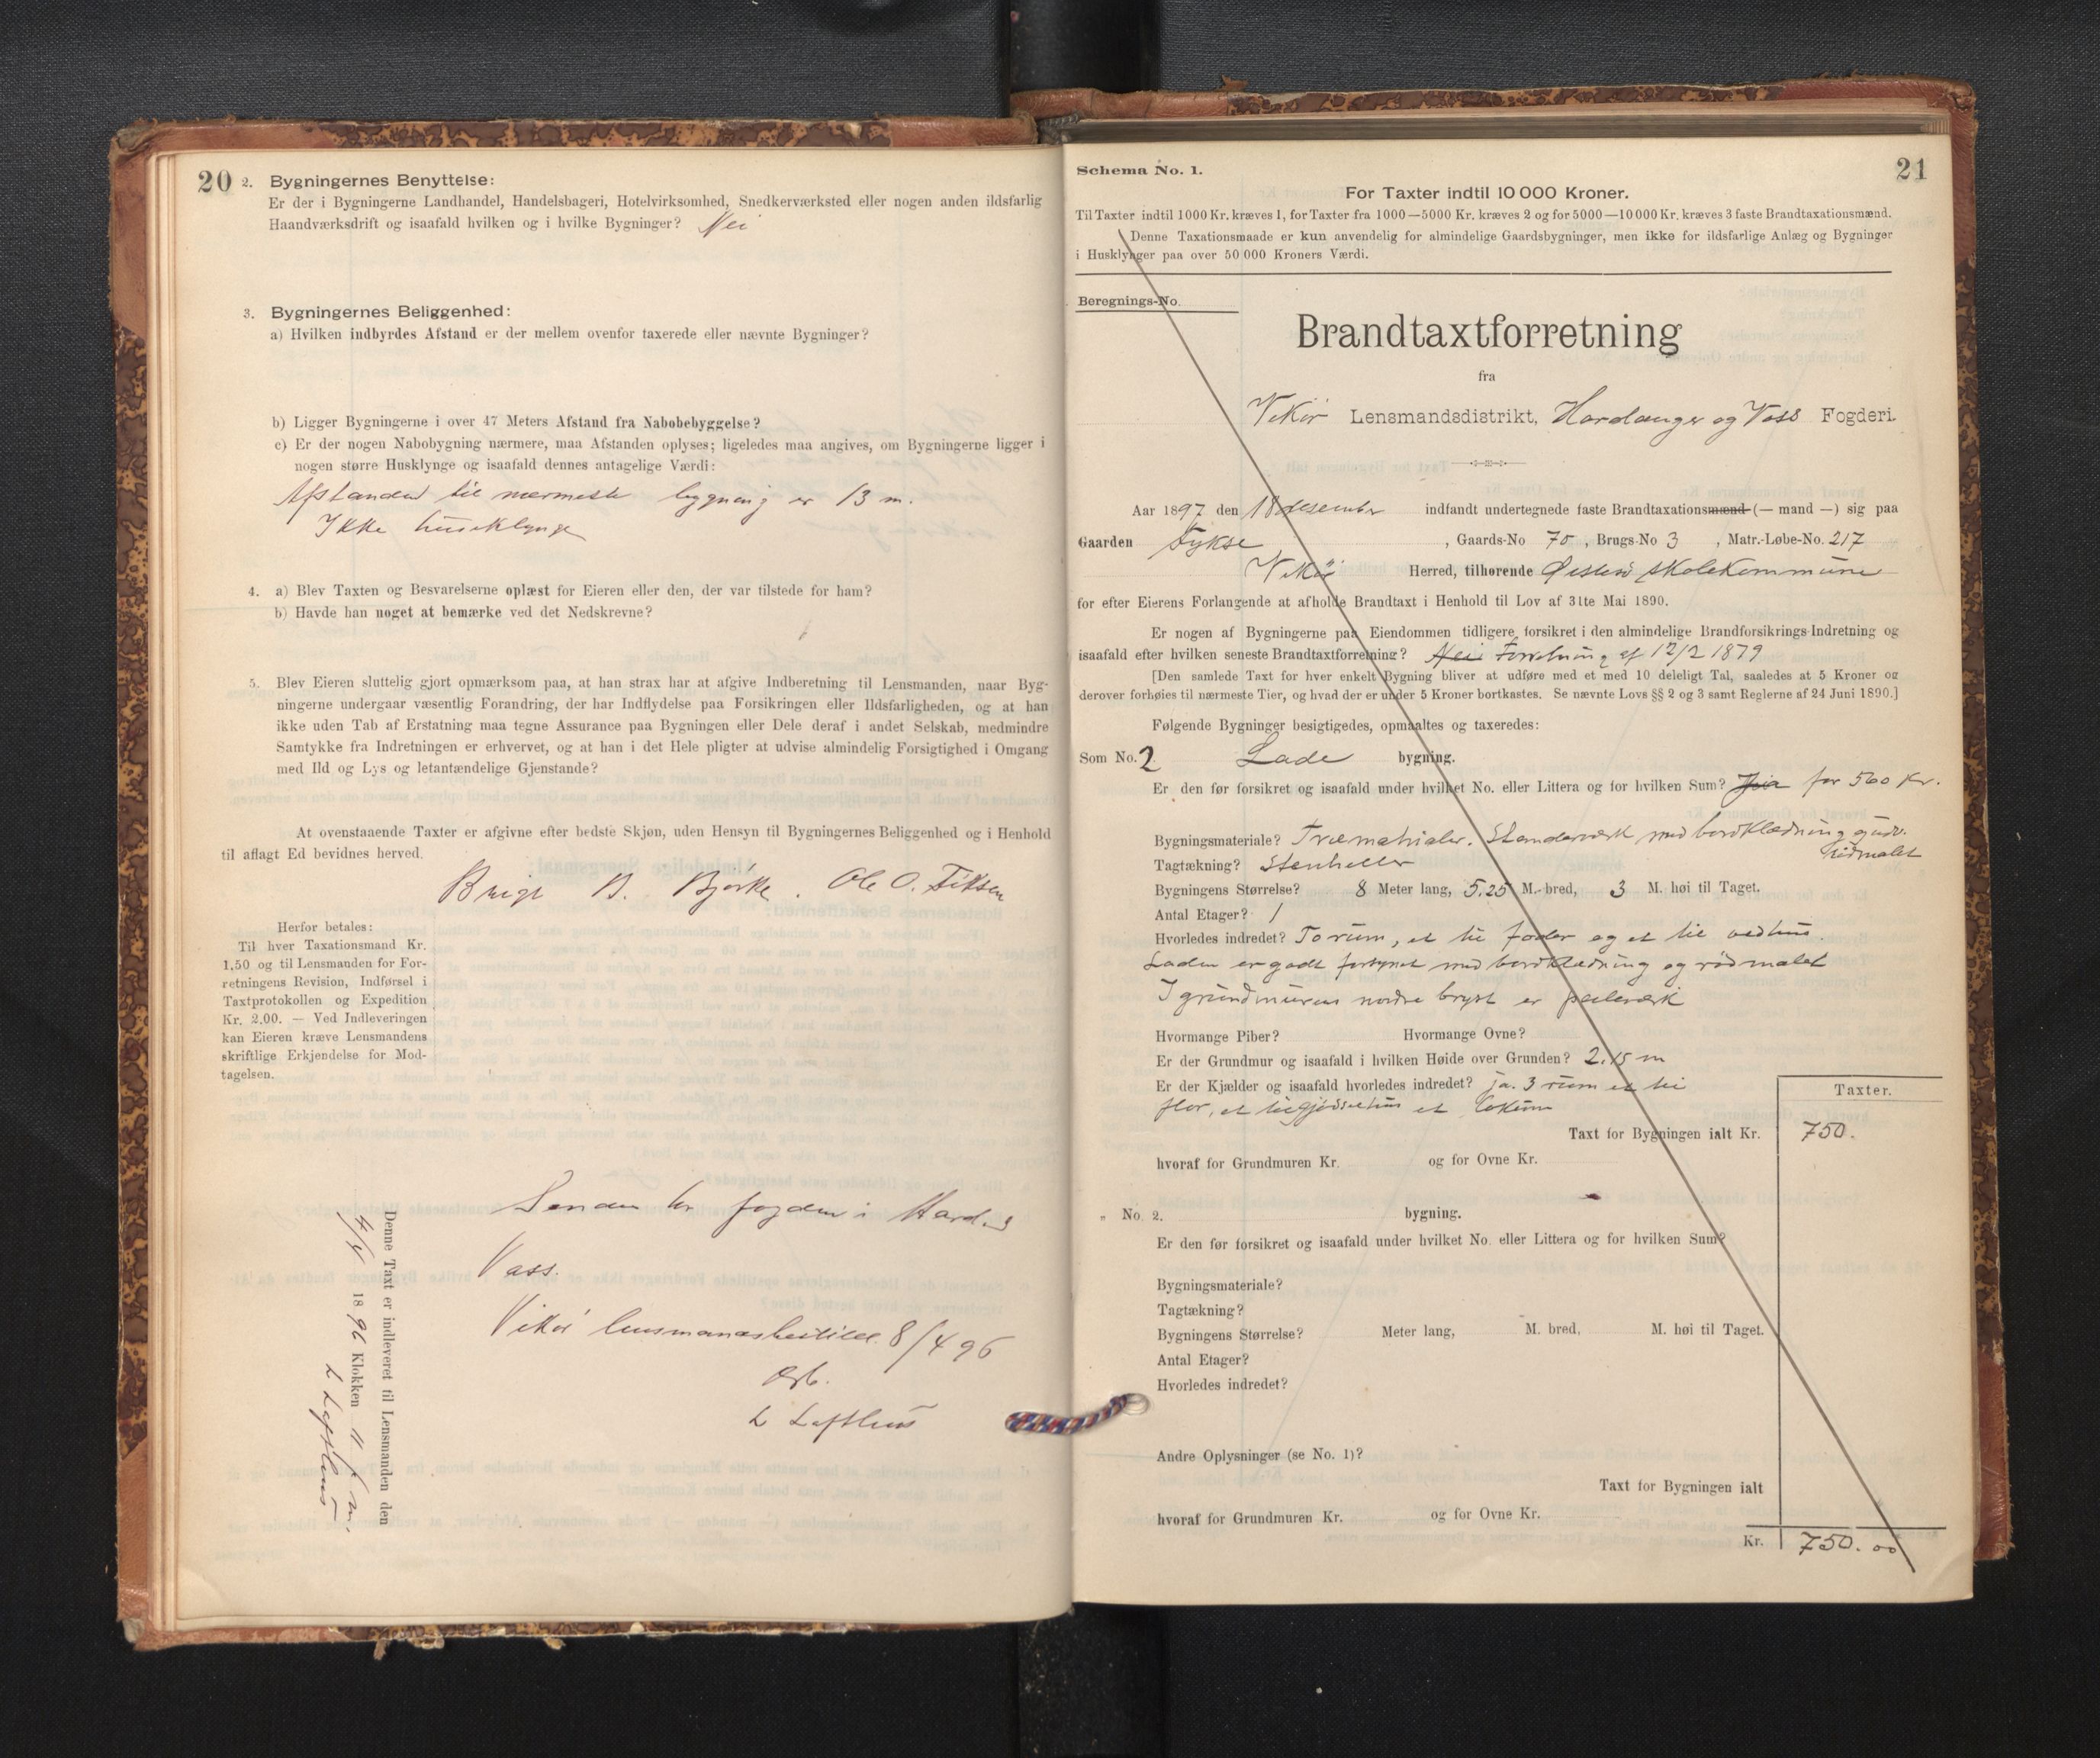 20
2. Bygningernes Benyttelse:
Er der i Bygningerne Landhandel, Handelsbageri, Hotelvirksomhed, Snedkerværksted eller nogen anden ildsfarlig
Haandværksdrift og isaafald hvilken og i hvilke Bygninger? Nei
3. Bygningernes Beliggenhed:
a) Hvilken indbyrdes Afstand er der mellem ovenfor taxerede eller nævnte Bygninger?
b) Ligger Bygningerne i over 47 Meters Afstand fra Nabobebyggelse?
c) Er der nogen Nabobygning nærmere, maa Afstanden oplyses; ligeledes maa angives, om Bygningerne ligger i
nogen større Husklynge og isaafald dennes antagelige Værdi:
Afstanden til nærmeste bygning er 13 m.
Ikke huseklynge
4. a) Blev Taxten og Besvarelserne oplæst for Eieren eller den, der var tilstede for ham?
b) Havde han noget at bemærke ved det Nedskrevne?
5. Blev Eieren sluttelig gjort opmærksom paa, at han strax har at afgive Indberetning til Lensmanden, naar Byg-
ningerne undergaar væsentlig Forandring, der har Indflydelse paa Forsikringen eller Ildsfarligheden, og at han
ikke uden Tab af Erstatning maa tegne Assurance paa Bygningen eller Dele deraf i andet Selskab, medmindre
Samtykke fra Indretningen er erhvervet, og at han i det Hele pligter at udvise almindelig Forsigtighed i Omgang
med Ild og Lys og letantændelige Gjenstande?
At ovenstaaende Taxter er afgivne efter bedste Skjøn, uden Hensyn til Bygningernes Beliggenhed og i Henhold
til aflagt Ed bevidnes herved.
Brigt B. Bjørke. Ole O. Fiksen
Herfor betales:
Til hver Taxationsmand Kr.
1,50 og til Lensmanden for For-
retningens Revision, Indførsel i
Taxtprotokollen og Expedition
Kr. 2.00. — Ved Indleveringen
kan Eieren kræve Lensmandens
skriftlige Erkjendelse for Mod-
tagelsen.
Denne Taxt er indleveret til Lensmanden den
1896 Klokken 11 f m.
L Lofthus
Sendes hr fogden i Hard. og
Voss.
Vikør lensmansbestill. 8/4 96
Ærb.
L Lofthus
21
Schema No. 1.
For Taxter indtil 10 000 Kroner.
Til Taxter indtil 1000 Kr. kræves 1, for Taxter fra 1000—5000 Kr. kræves 2 og for 5000—10000 Kr. kræves 3 faste Brandtaxationsmænd.
Denne Taxationsmaade er kun anvendelig for almindelige Gaardsbygninger, men ikke for ildsfarlige Anlæg og Bygninger
i Husklynger paa over 50 000 Kroners Værdi.
Beregnings-No.
Brandtaxtforretning
fra
Vikør Lensmandsdistrikt, Hardanger og Voss Fogderi.
Aar 1897 den 18 desember indfandt undertegnede faste Brandtaxationsmænd (— mand —) sig paa
Gaarden Fykse, Gaards-No 70, Brugs-No 3, Matr.-Løbe-No. 217
Vikør Herred, tilhørende Østensø skolekommune
for efter Eierens Forlangende at afholde Brandtaxt i Henhold til Lov af 31te Mai 1890.
Er nogen af Bygningerne paa Eiendommen tidligere forsikret i den almindelige Brandforsikrings-Indretning og
isaafald efter hvilken seneste Brandtaxtforretning? Nei Forretning af 12/2 1879
[Den samlede Taxt for hver enkelt Bygning bliver at udføre med et med 10 deleligt Tal, saaledes at 5 Kroner og
derover forhøies til nærmeste Tier, og hvad der er under 5 Kroner bortkastes. Se nævnte Lovs §§ 2 og 3 samt Reglerne af 24 Juni 1890.]
Følgende Bygninger besigtigedes, opmaaltes og taxeredes:
Som No. 2 Lade bygning.
Er den før forsikret og isaafald under hvilket No. eller Littera og for hvilken Sum? for 560 Kr.
Bygningsmateriale? Træmatrialer. Standerværk med bordklædning
rødmalet
Tagtækning? Stenheller
Bygningens Størrelse? 8 Meter lang, 5.25 M. bred, 3 M. høi til Taget.
Antal Etager? 1
Hvorledes indredet? To rum, et til foder og et til vedhus.
Laden er godt forsynet med bordklædning og rødmalet
I grundmurens nordre bryst er peilværk
Hvormange Piber? Hvormange Ovne?
Er der Grundmur og isaafald i hvilken Høide over Grunden? 2.15 m
Er der Kjælder og isaafald hvorledes indredet? ja. 3 rum et til
flor, et til gjødselhus et lokum
Taxter.
Taxt for Bygningen ialt Kr. 750.
hvoraf for Grundmuren Kr. og for Ovne Kr.
" No. 2. bygning.
Er den før forsikret og isaafald under hvilket No. eller Littera og for hvilken Sum?
Bygningsmateriale?
Tagtækning?
Bygningens Størrelse? Meter lang, M. bred, M. høi til Taget.
Antal Etager?
Hvorledes indredet?
Andre Oplysninger (se No. 1)?
Taxt for Bygningen ialt
hvoraf for Grundmuren Kr. og for Ovne Kr.
Kr. 750.00